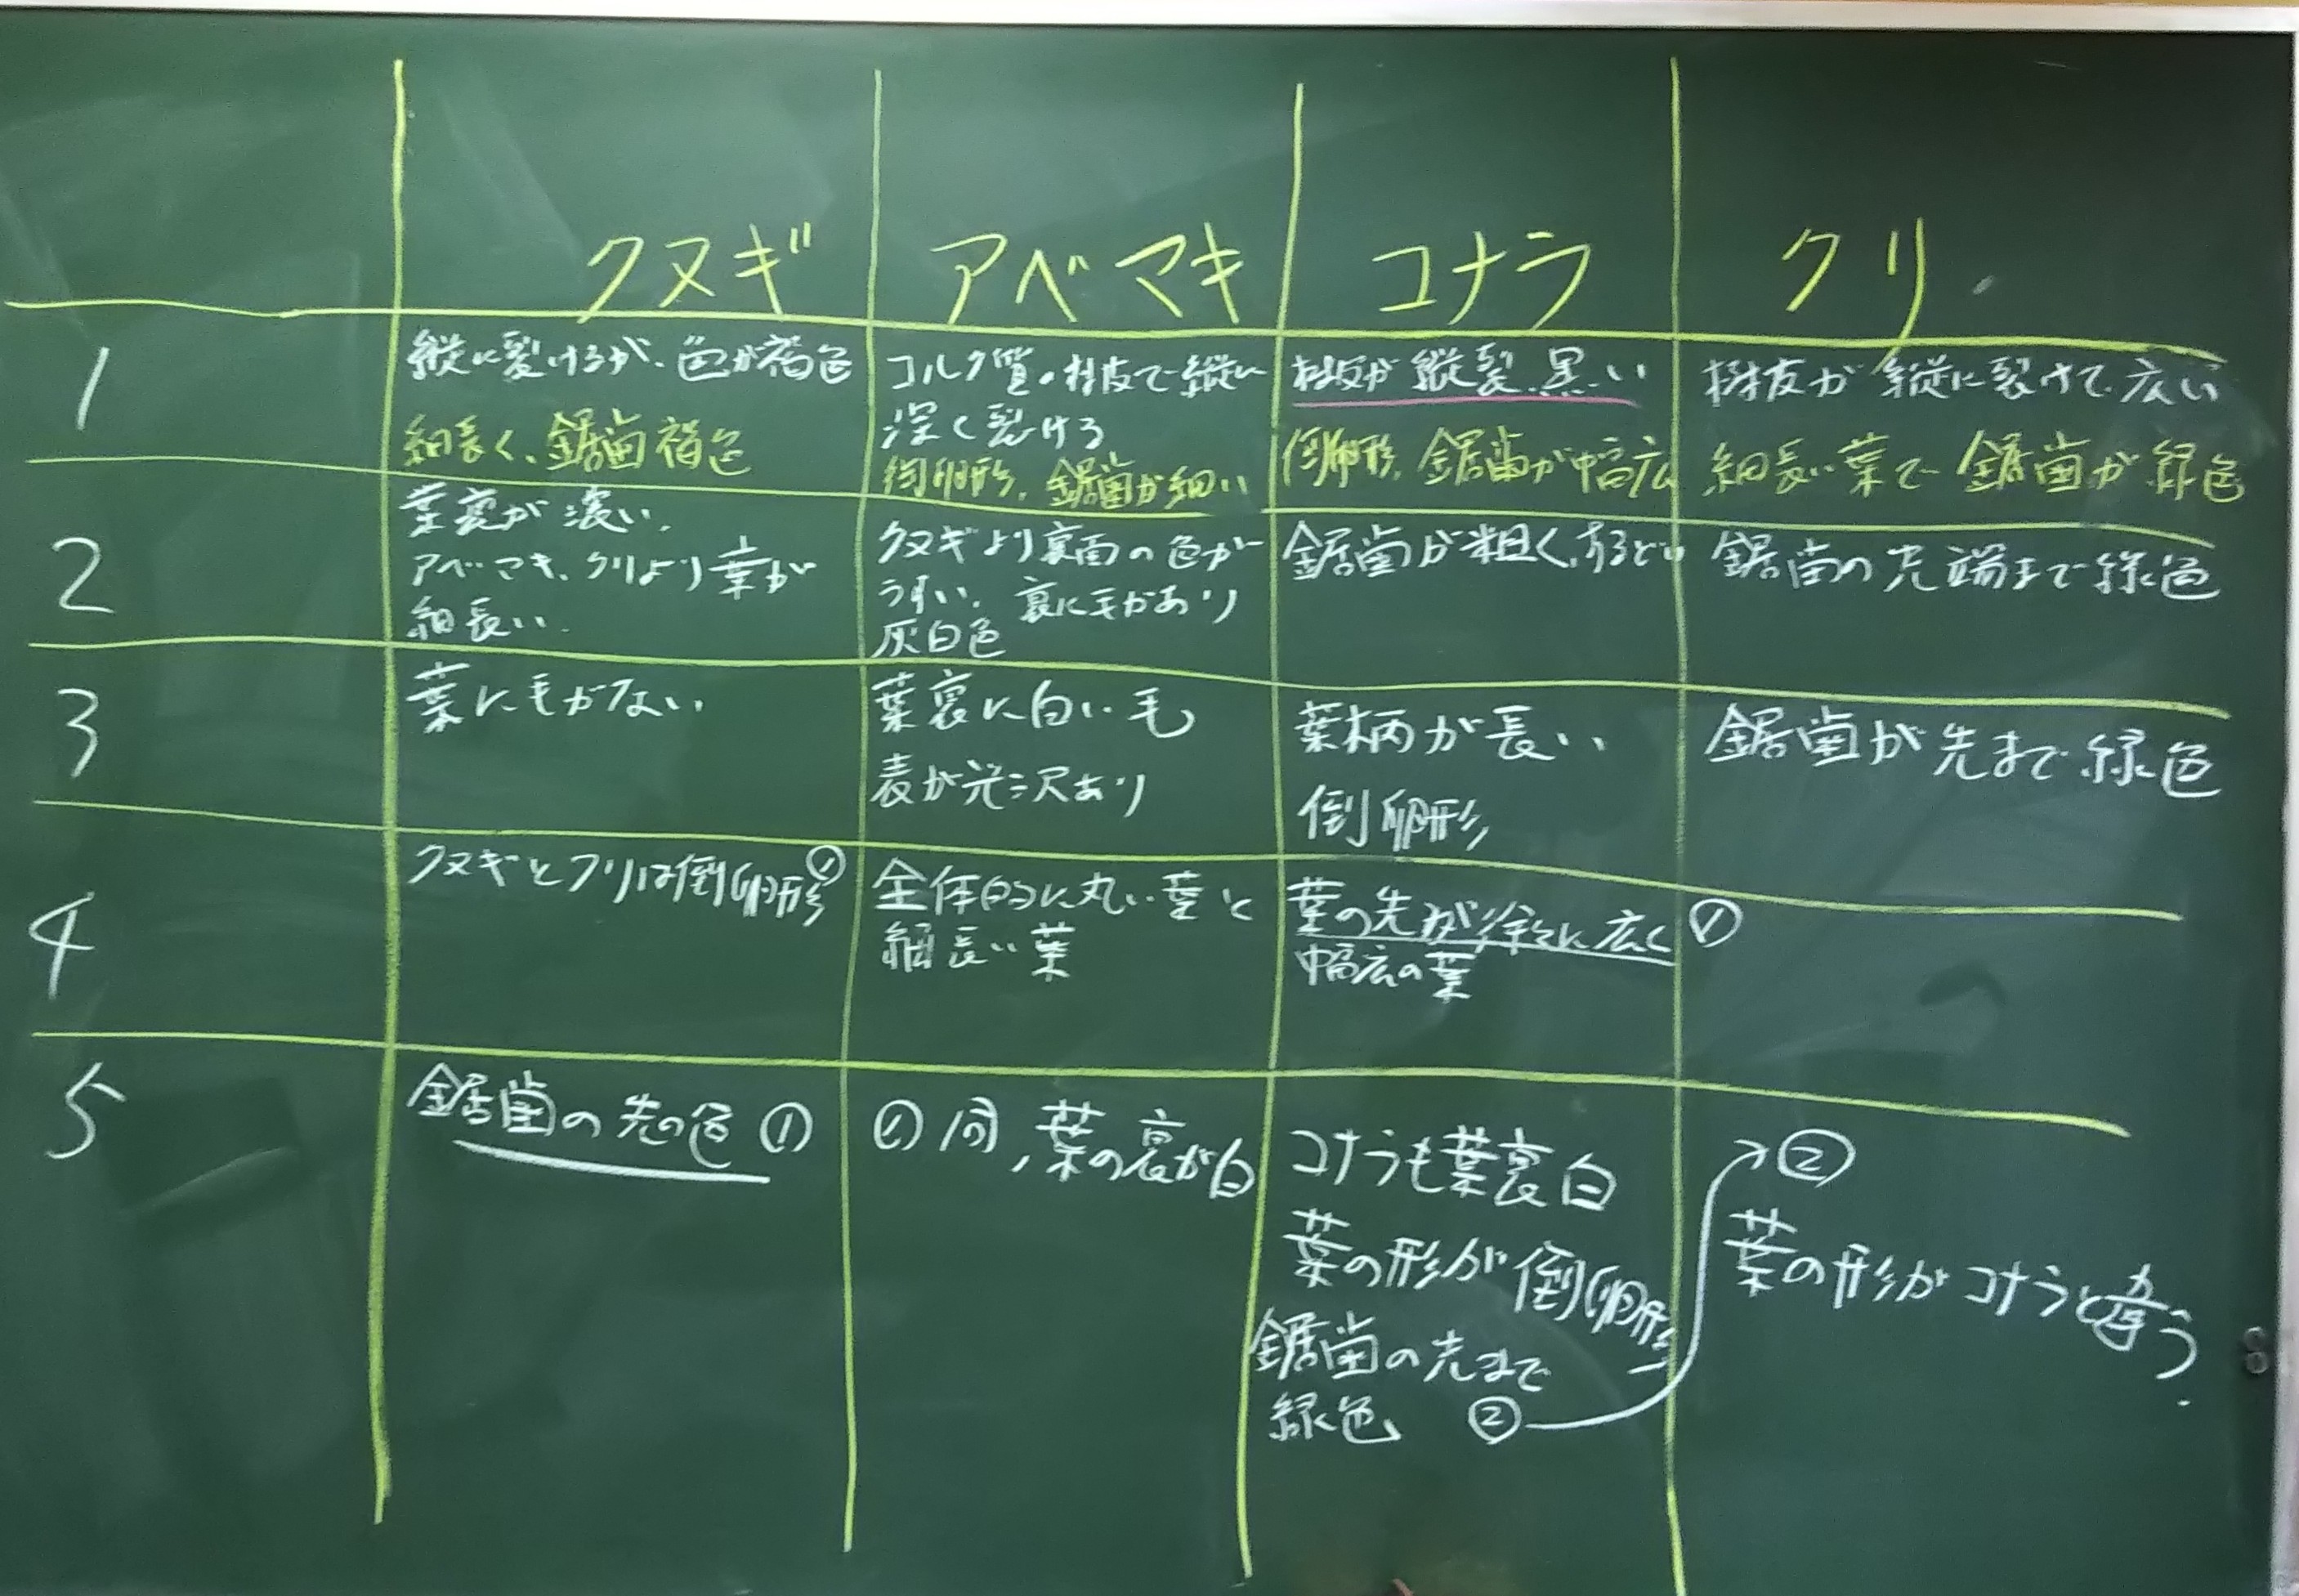 クヌギ
アベマキ
コナラ
クリ
1
縦に裂けるが、色が褐色
細長く、鋸歯褐色
コルク質の樹皮で縦に
深く裂ける
倒卵形、鋸歯が細い
樹皮が縦裂、黒い
倒卵形、鋸歯が幅広
樹皮が縦に裂けて広い
細長い葉で鋸歯が緑色
2
葉裏が濃い、
アベマキ、クリより葉が
細長い
クヌギより裏面の色が
うすい、裏に毛があり
灰白色
鋸歯が粗く、するどい
鋸歯の先端まで緑色
3
葉に毛がない
葉裏に白い毛
表が光沢あり
葉柄が長い
倒卵形
鋸歯が先まで緑色
4
クヌギとクリは倒卵形①
全体的に丸い葉と
細長い葉
葉の先が徐々に広く①
幅広の葉
5
鋸歯の先の色①
①同、葉の裏が白
コナラも葉裏白
葉の形が倒卵形
鋸歯の先まで
緑色 ②
②
葉の形がコナラと違う.